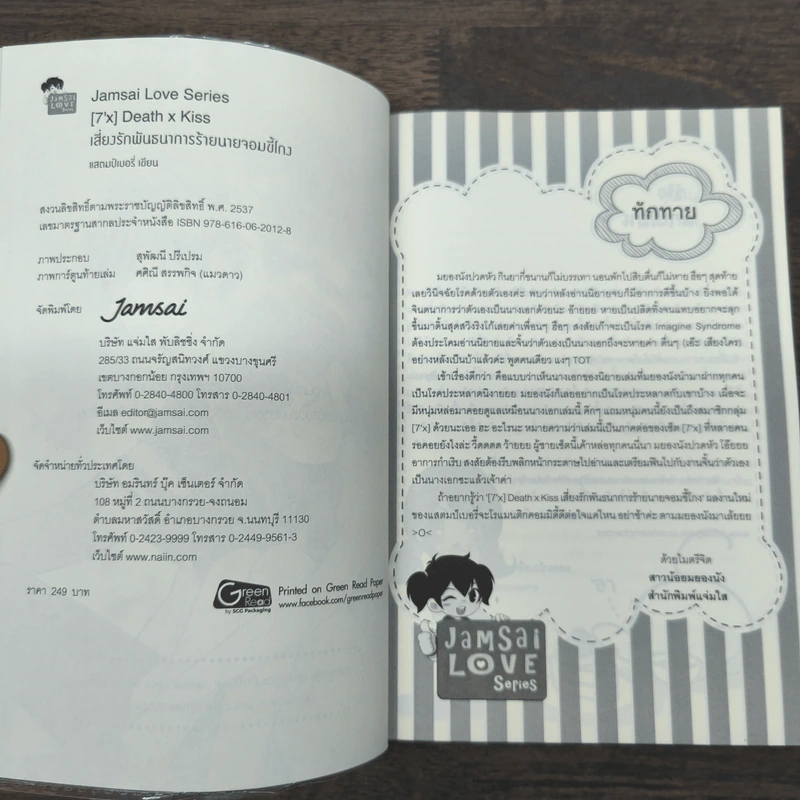 JAMSAI
LOVE
Series
Jamsai Love Series
[7'x] Death x Kiss
เสี่ยงรักพันธนาการร้ายนายจอมขี้โกง
แสตมป์เบอรี่ เขียน
สงวนลิขสิทธิ์ตามพระราชบัญญัติลิขสิทธิ์ พ.ศ. 2537
เลขมาตรฐานสากลประจำหนังสือ ISBN 978-616-06-2012-8
ภาพประกอบ สุพัฒนี ปรีเปรม
ภาพการ์ตูนท้ายเล่ม ศศิณี สรรพกิจ (แมวดาว)
จัดพิมพ์โดย Jamsai
บริษัท แจ่มใส พับลิชชิ่ง จำกัด
285/33 ถนนจรัญสนิทวงศ์ แขวงบางขุนศรี
เขตบางกอกน้อย กรุงเทพฯ 10700
โทรศัพท์ 0-2840-4800 โทรสาร 0-2840-4801
อีเมล editor@jamsai.com
เว็บไซต์ www.jamsai.com
จัดจำหน่ายทั่วประเทศโดย
บริษัท อมรินทร์ บุ๊ค เซ็นเตอร์ จำกัด
108 หมู่ที่ 2 ถนนบางกรวย-จงถนอม
ตำบลมหาสวัสดิ์ อำเภอบางกรวย จ.นนทบุรี 11130
โทรศัพท์ 0-2423-9999 โทรสาร 0-2449-9561-3
เว็บไซต์ www.naiin.com
ราคา 249 บาท
Green
Read
by SCG Packaging
Printed on Green Read Paper
www.facebook.com/greenreadpaper
ทักทาย
มยองนังปวดหัว กินยากี่ขนานก็ไม่บรรเทา นอนพักไปสิบตื่นก็ไม่หาย ฮือๆ สุดท้าย
เลยวินิจฉัยโรคด้วยตัวเองค่ะ พบว่าหลังอ่านนิยายจบก็มีอาการดีขึ้นบ้าง ยิ่งพอได้
จินตนาการว่าตัวเองเป็นนางเอกด้วยนะ อ๊ายยย หายเป็นปลิดทิ้งจนแทบอยากจะลุก
ขึ้นมาตื้นสุดสวิงริงโก้เลยค่าเพื่อนๆ ฮือๆ สงสัยเก๊าจะเป็นโรค Imagine Syndrome
ต้องประโคมอ่านนิยายและจิ้นว่าตัวเองเป็นนางเอกถึงจะหายค่า ตื่นๆ (เอ๊ะ เสียงใคร)
อย่างหลังเป็นบ้าแล้วค่ะ พูดคนเดียว แงๆ TOT
เข้าเรื่องดีกว่า คือแบบว่าเห็นนางเอกของนิยายเล่มที่มยองนังนำมาฝากทุกคน
เป็นโรคประหลาดนิงายยย มยองนังก็เลยอยากเป็นโรคประหลาดกับเขาบ้าง เผื่อจะ
มีหนุ่มหล่อมาคอยดูแลเหมือนนางเอกเล่มนี้ คึกๆ แถมหนุ่มคนนี้ยังเป็นถึงสมาชิกกลุ่ม
[7'x] ด้วยนะเออ ฮะ อะไรนะ หมายความว่าเล่มนี้เป็นภาคต่อของเซ็ต [7'x] ที่หลายคน
รอคอยยังไงล่ะ วี้ดดดด ว้ายยย ผู้ชายเซ็ตนี้เค้าหล่อทุกคนนี่นา มยองนังปวดหัว โอ๊ยยย
อาการกำเริบ สงสัยต้องรีบพลิกหน้ากระดาษไปอ่านและเตรียมฟินไปกับงานจิ้นว่าตัวเอง
เป็นนางเอกซะแล้วเจ้าค่า
ถ้าอยากรู้ว่า '[7'x] Death x Kiss เสี่ยงรักพันธนาการร้ายนายจอมขี้โกง' ผลงานใหม่
ของแสตมป์เบอรี่จะโรแมนติกคอมมิดี้ดีต่อใจแค่ไหน อย่าช้าค่ะ ตามมยองนังมาเล้ยยย
>O<
ด้วยไมตรีจิต
สาวน้อยมยองนัง
สำนักพิมพ์แจ่มใส
JAMSAI
LOVE
Series